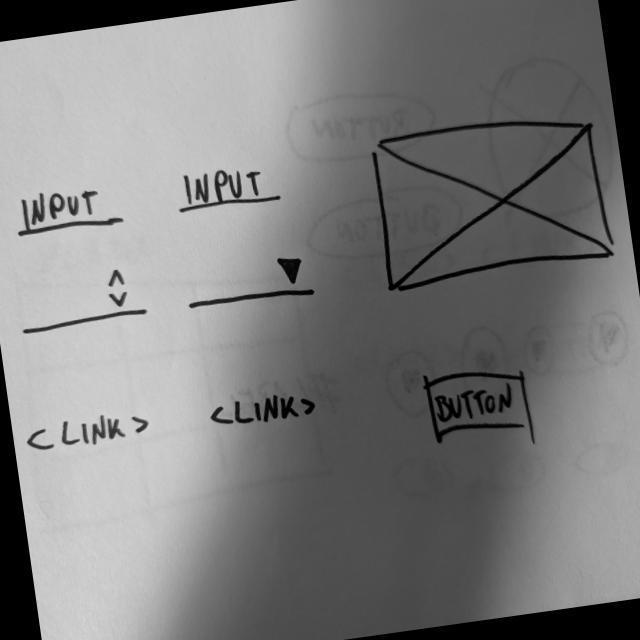 INPUT
INPUT
<LINK>
<LINK>
BUTTON